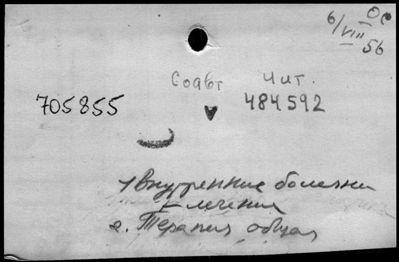 Ос
6/VIII
56
Соавт Чит.
705855 484592
1 Внутренние болезни
– лечения
2. Терапия общая